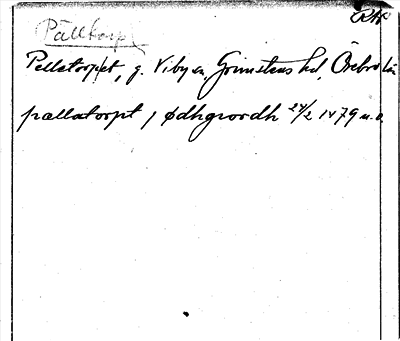 Pälltorp
Pellatorpet, g. Viby sn, Grimstens hd, Örebro län
pællatorpt j ødhgoordh 24/2 1479 u.o.